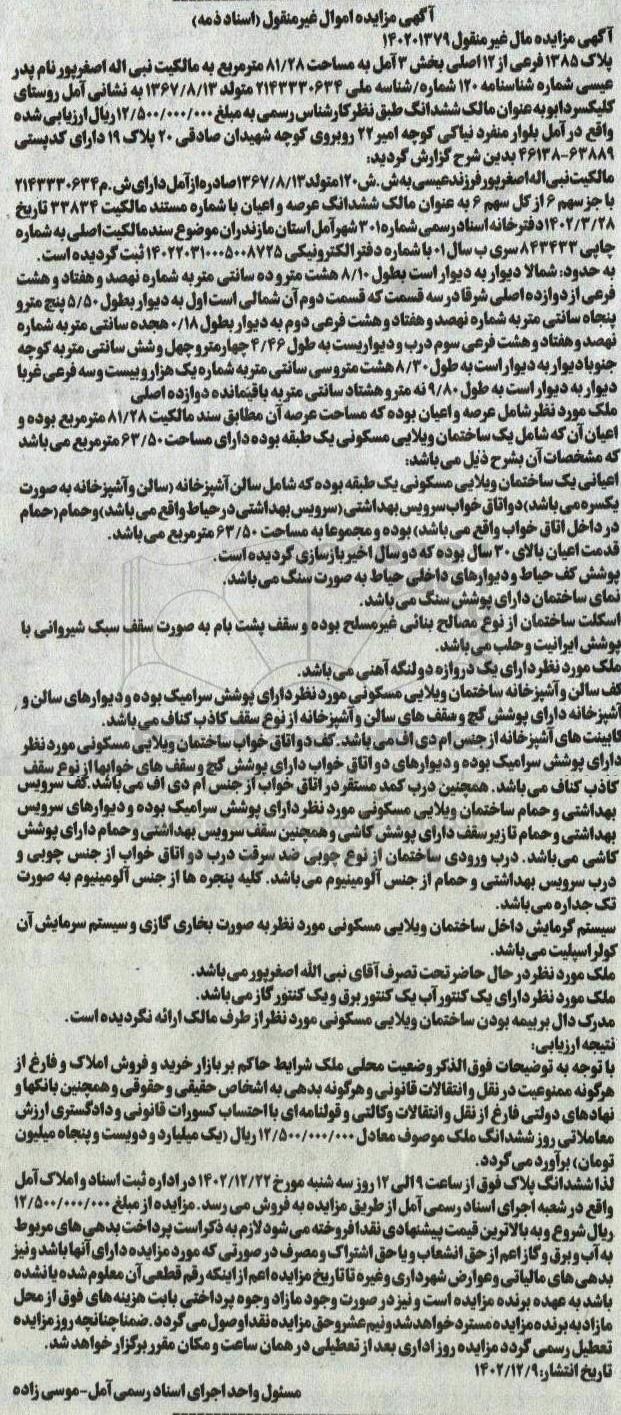 آگهی مزایده اموال غیرمنقول (اسناد ذمه)
آگهی مزایده مال غیرمنقول ۱۴۰۲۰۱۳۷۹
پلاک ۱۳۸۵ فرعی از ۱۲ اصلی بخش ۳ آمل به مساحت ۸۱/۲۸ مترمربع به مالکیت نبی اله اصغرپور نام پدر
عیسی شماره شناسنامه ۱۲۰ شماره/شناسه ملی ۲۱۴۳۳۳۰۶۳۴ متولد ۱۳۶۷/۸/۱۳ به نشانی آمل روستای
کلیکسر دابو به عنوان مالک ششدانگ طبق نظر کارشناس رسمی به مبلغ ۱۲/۵۰۰/۰۰۰/۰۰۰ ریال ارزیابی شده
واقع در آمل بلوار منفرد نیاکی کوچه امیر ۲۲ روبروی کوچه شهیدان صادقی ۲۰ پلاک ۱۹ دارای کدپستی
۶۳۸۸۹-۴۶۱۳۸ بدین شرح گزارش گردید:
مالکیت نبی اله اصغرپور فرزند عیسی به ش.ش ۱۲۰ متولد ۱۳۶۷/۸/۱۳ صادره از آمل دارای ش.م ۲۱۴۳۳۳۰۶۳۴
با جز سهم ۶ از کل سهم ۶ به عنوان مالک ششدانگ عرصه و اعیان با شماره مستند مالکیت ۳۳۸۳۴ تاریخ
۱۴۰۲/۳/۲۸ دفترخانه اسناد رسمی شماره ۳۰۱ شهر آمل استان مازندران موضوع سند مالکیت اصلی به شماره
چاپی ۸۴۳۴۳۳ سری ب سال ۰۱ با شماره دفتر الکترونیکی ۱۴۰۲۲۰۳۱۰۰۰۵۰۰۸۷۲۵ ثبت گردیده است.
به حدود: شمالا دیوار به دیوار است بطول ۸/۱۰ هشت متر و ده سانتی متر به شماره نهصد و هفتاد و هشت
فرعی از دوازده اصلی شرقا در سه قسمت که قسمت دوم آن شمالی است اول به دیوار بطول ۵/۵۰ پنج متر و
پنجاه سانتی متر به شماره نهصد و هفتاد و هشت فرعی دوم به دیوار بطول ۰/۱۸ هجده سانتی متر به شماره
نهصد و هفتاد و هشت فرعی سوم درب و دیواریست به طول ۴/۴۶ چهار متر و چهل و شش سانتی متر به کوچه
جنوبا دیوار به دیوار است به طول ۸/۳۰ هشت متر و سی سانتی متر به شماره یک هزار و بیست و سه فرعی غربا
دیوار به دیوار است به طول ۹/۸۰ نه متر و هشتاد سانتی متر به باقیمانده دوازده اصلی
ملک مورد نظر شامل عرصه و اعیان بوده که مساحت عرصه آن مطابق سند مالکیت ۸۱/۲۸ مترمربع بوده و
اعیان آن که شامل یک ساختمان ویلایی مسکونی یک طبقه بوده دارای مساحت ۶۳/۵۰ مترمربع می باشد
که مشخصات آن بشرح ذیل می باشد:
اعیانی یک ساختمان ویلایی مسکونی یک طبقه بوده که شامل سالن آشپزخانه (سالن و آشپزخانه به صورت
یکسره می باشد) دو اتاق خواب سرویس بهداشتی (سرویس بهداشتی در حیاط واقع می باشد) و حمام (حمام
در داخل اتاق خواب واقع می باشد) بوده و مجموعا به مساحت ۶۳/۵۰ مترمربع می باشد.
قدمت اعیان بالای ۳۰ سال بوده که دو سال اخیر بازسازی گردیده است.
پوشش کف حیاط و دیوارهای داخلی حیاط به صورت سنگ می باشد.
نمای ساختمان دارای پوشش سنگ می باشد.
اسکلت ساختمان از نوع مصالح بنائی غیرمسلح بوده و سقف پشت بام به صورت سقف سبک شیروانی با
پوشش ایرانیت و حلب می باشد.
ملک مورد نظر دارای یک دروازه دو لنگه آهنی می باشد.
کف سالن و آشپزخانه ساختمان ویلایی مسکونی مورد نظر دارای پوشش سرامیک بوده و دیوارهای سالن و
آشپزخانه دارای پوشش گچ و سقف های سالن و آشپزخانه از نوع سقف کاذب کناف می باشد.
کابینت های آشپزخانه از جنس ام دی اف می باشد. کف دو اتاق خواب ساختمان ویلایی مسکونی مورد نظر
دارای پوشش سرامیک بوده و دیوارهای دو اتاق خواب دارای پوشش گچ و سقف های خوابها از نوع سقف
کاذب کناف می باشد. همچنین درب کمد مستقر در اتاق خواب از جنس ام دی اف می باشد. کف سرویس
بهداشتی و حمام ساختمان ویلایی مسکونی مورد نظر دارای پوشش سرامیک بوده و دیوارهای سرویس
بهداشتی و حمام تا زیر سقف دارای پوشش کاشی و همچنین سقف سرویس بهداشتی و حمام دارای پوشش
کاشی می باشد. درب ورودی ساختمان از نوع چوبی ضد سرقت درب دو اتاق خواب از جنس چوبی و
درب سرویس بهداشتی و حمام از جنس آلومینیوم می باشد. کلیه پنجره ها از جنس آلومینیوم به صورت
تک جداره می باشد.
سیستم گرمایش داخل ساختمان ویلایی مسکونی مورد نظر به صورت بخاری گازی و سیستم سرمایش آن
کولر اسپلیت می باشد.
ملک مورد نظر در حال حاضر تحت تصرف آقای نبی الله اصغرپور می باشد.
ملک مورد نظر دارای یک کنتور آب یک کنتور برق و یک کنتور گاز می باشد.
مدرک دال بر بیمه بودن ساختمان ویلایی مسکونی مورد نظر از طرف مالک ارائه نگردیده است.
نتیجه ارزیابی:
با توجه به توضیحات فوق الذکر وضعیت محلی ملک شرایط حاکم بر بازار خرید و فروش املاک و فارغ از
هرگونه ممنوعیت در نقل و انتقالات قانونی و هرگونه بدهی به اشخاص حقیقی و حقوقی و همچنین بانکها و
نهادهای دولتی فارغ از نقل و انتقالات وکالتی و قولنامه ای با احتساب کسورات قانونی و دادگستری ارزش
معاملاتی روز ششدانگ ملک موصوف معادل ۱۲/۵۰۰/۰۰۰/۰۰۰ ریال (یک میلیارد و دویست و پنجاه میلیون
تومان) برآورد می گردد.
لذا ششدانگ پلاک فوق از ساعت ۹ الی ۱۲ روز سه شنبه مورخ ۱۴۰۲/۱۲/۲۲ در اداره ثبت اسناد و املاک آمل
واقع در شعبه اجرای اسناد رسمی آمل از طریق مزایده به فروش می رسد. مزایده از مبلغ ۱۲/۵۰۰/۰۰۰/۰۰۰
ریال شروع و به بالاترین قیمت پیشنهادی نقدا فروخته می شود لازم به ذکر است پرداخت بدهی های مربوط
به آب و برق و گاز اعم از حق انشعاب و یا حق اشتراک و مصرف در صورتی که مورد مزایده دارای آنها باشد و نیز
بدهی های مالیاتی و عوارض شهرداری و غیره تا تاریخ مزایده اعم از اینکه رقم قطعی آن معلوم شده یا نشده
باشد به عهده برنده مزایده است و نیز در صورت وجود مازاد وجوه پرداختی بابت هزینه های فوق از محل
مازاد به برنده مزایده مسترد خواهد شد و نیم عشر و حق مزایده نقدا وصول می گردد. ضمنا چنانچه روز مزایده
تعطیل رسمی گردد مزایده روز اداری بعد از تعطیلی در همان ساعت و مکان مقرر برگزار خواهد شد.
تاریخ انتشار: ۱۴۰۲/۱۲/۹
مسئول واحد اجرای اسناد رسمی آمل-موسی زاده